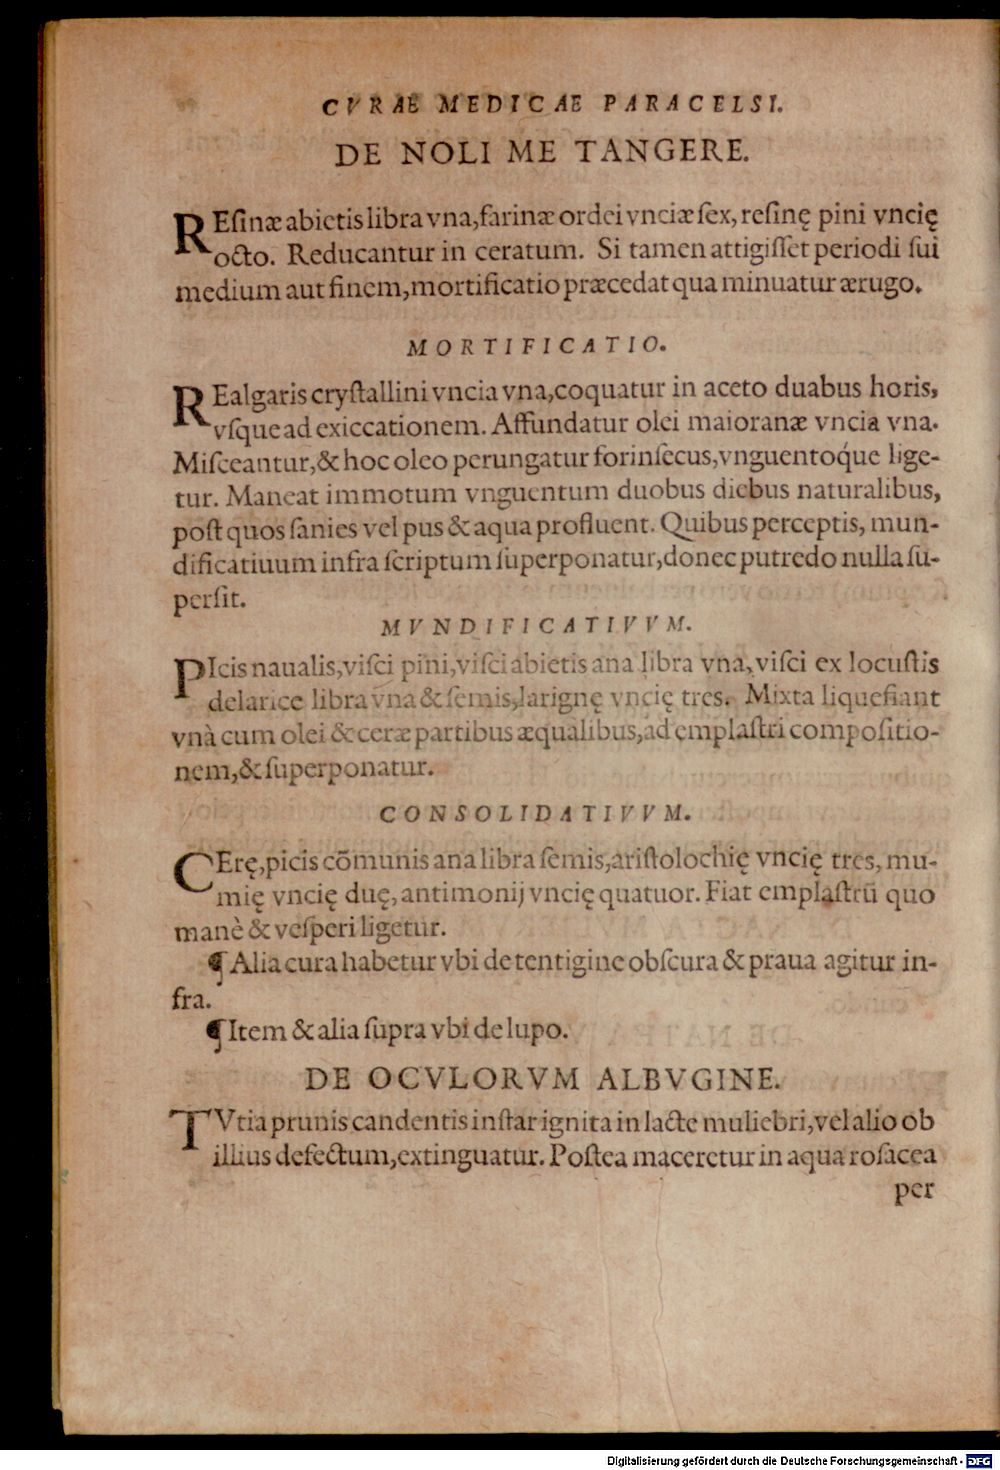 CVRAE MEDICAE PARACELSI.
DE NOLI ME TANGERE.
REſinæ abietis libra vna, farinæ ordei vnciæ ſex, reſinę pini vncię
octo. Reducantur in ceratum. Si tamen attigiſſet periodi ſui
medium aut finem, mortificatio præcedat qua minuatur ærugo.
MORTIFICATIO.
REalgaris cryſtallini vncia vna, coquatur in aceto duabus horis,
vſque ad exiccationem. Affundatur olei maioranæ vncia vna.
Miſceantur, & hoc oleo perungatur forinſecus, vnguentoq́ue lige-
tur. Maneat immotum vnguentum duobus diebus naturalibus,
poſt quos ſanies vel pus & aqua profluent. Quibus perceptis, mun-
dificatiuum infra ſcriptum ſuperponatur, donec putredo nulla ſu-
perſit.
MVNDIFICATIVVM.
PIcis naualis, viſci pini, viſci abietis ana libra vna, viſci ex locuſtis
de larice libra vna & ſemis, larignę vncię tres. Mixta liquefiant
vnà cum olei & ceræ partibus æqualibus, ad emplaſtri compoſitio-
nem, & ſuperponatur.
CONSOLIDATIVVM.
CErę, picis cōmunis ana libra ſemis, ariſtolochię vncię tres, mu-
mię vncię duę, antimonij vncię quatuor. Fiat emplaſtrū quo
manè & veſperi ligetur.
¶ Alia cura habetur vbi de tentigine obſcura & praua agitur in-
fra.
¶ Item & alia ſupra vbi de lupo.
DE OCVLORVM ALBVGINE.
TVtia prunis candentis inſtar ignita in lacte muliebri, vel alio ob
illius defectum, extinguatur. Poſtea maceretur in aqua roſacea
per
Digitalisierung gefördert durch die Deutsche Forschungsgemeinschaft - DFG